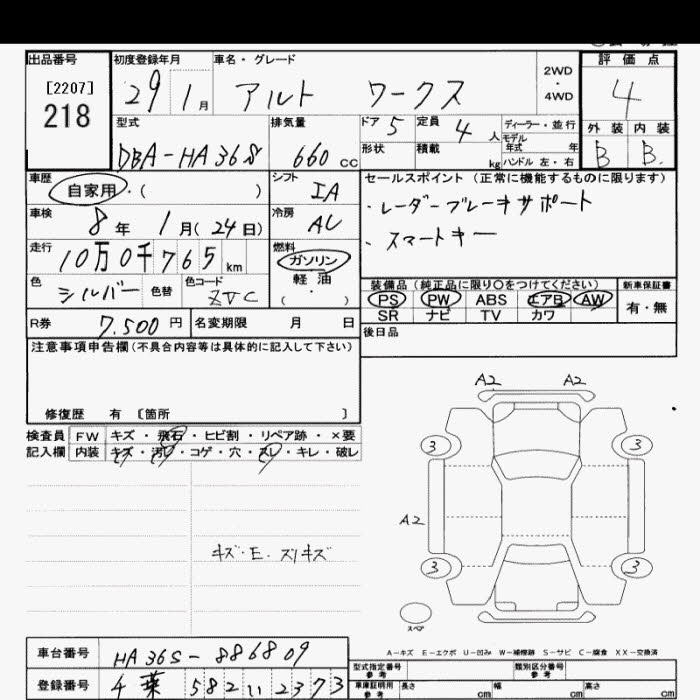 出品番号 初度登録年月 車名・グレード 評価点
[2207] 29 1月 アルト ワークス 2WD ・ 4WD 4
218
型式 排気量 ドア 5 定員 4人 ディーラー・並行 外装 内装
DBA-HA36S 660cc 形状 積載 kg モデル年式 年 B B
ハンドル 左・右
車歴 自家用・( ) シフト IA セールスポイント (正常に機能するものに限ります)
車検 8年 1月(24日) 冷房 AC ・レーダーブレーキサポート
・スマートキー
走行 10万0千765km 燃料 ガソリン
軽油
( ・ )
色 シルバー 色替 色コード ZVC 装備品(純正品に限り○をつけてください) 新車保証書
PS PW ABS エアB AW 有・無
SR ナビ TV カワ
R券 7.500円 名変期限 月 日 後日品
注意事項申告欄(不具合内容等は具体的に記入して下さい)
修復歴 有 〔箇所 〕
検査員 FW キズ・飛石・ヒビ割・リペア跡・×要
記入欄 内装 キズ・汚レ・コゲ・穴・スレ・キレ・破レ
キズ・E・スリキズ
A2 A2
3 3
A2
3 3
スペア
A-キズ E-エクボ U-凹み W-補修跡 S-サビ C-腐食 XX-交換済
車台番号 HA36S-886809
登録番号 千葉 582 い 2373
型式指定番号 参考 類別区分番号 参考
車庫証明用 参考 長さ cm 幅 cm 高さ cm